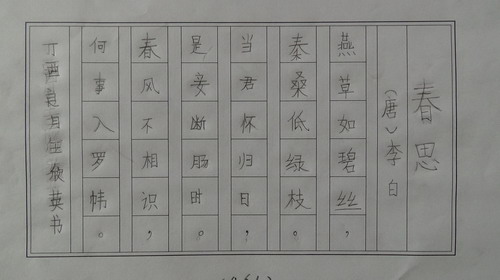 春思
(唐)李白
燕草如碧丝,
秦桑低绿枝。
当君怀归日,
是妾断肠时。
春风不相识,
何事入罗帏。
丁酉
英书